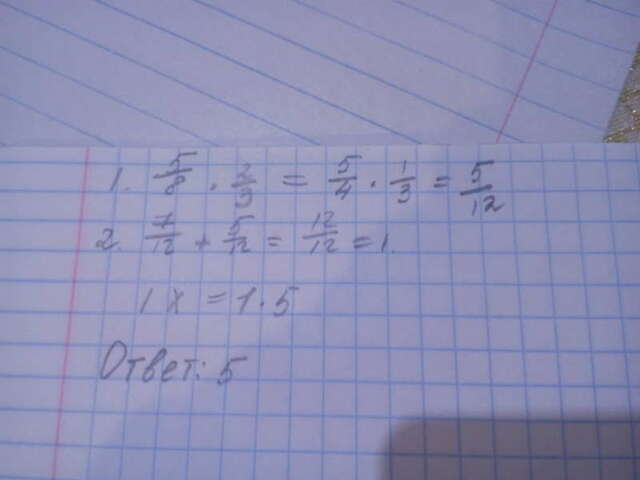 1. 5/8 · 2/3 = 5/4 · 1/3 = 5/12
2. 7/12 + 5/12 = 12/12 = 1.
1 x = 1 · 5
Ответ: 5